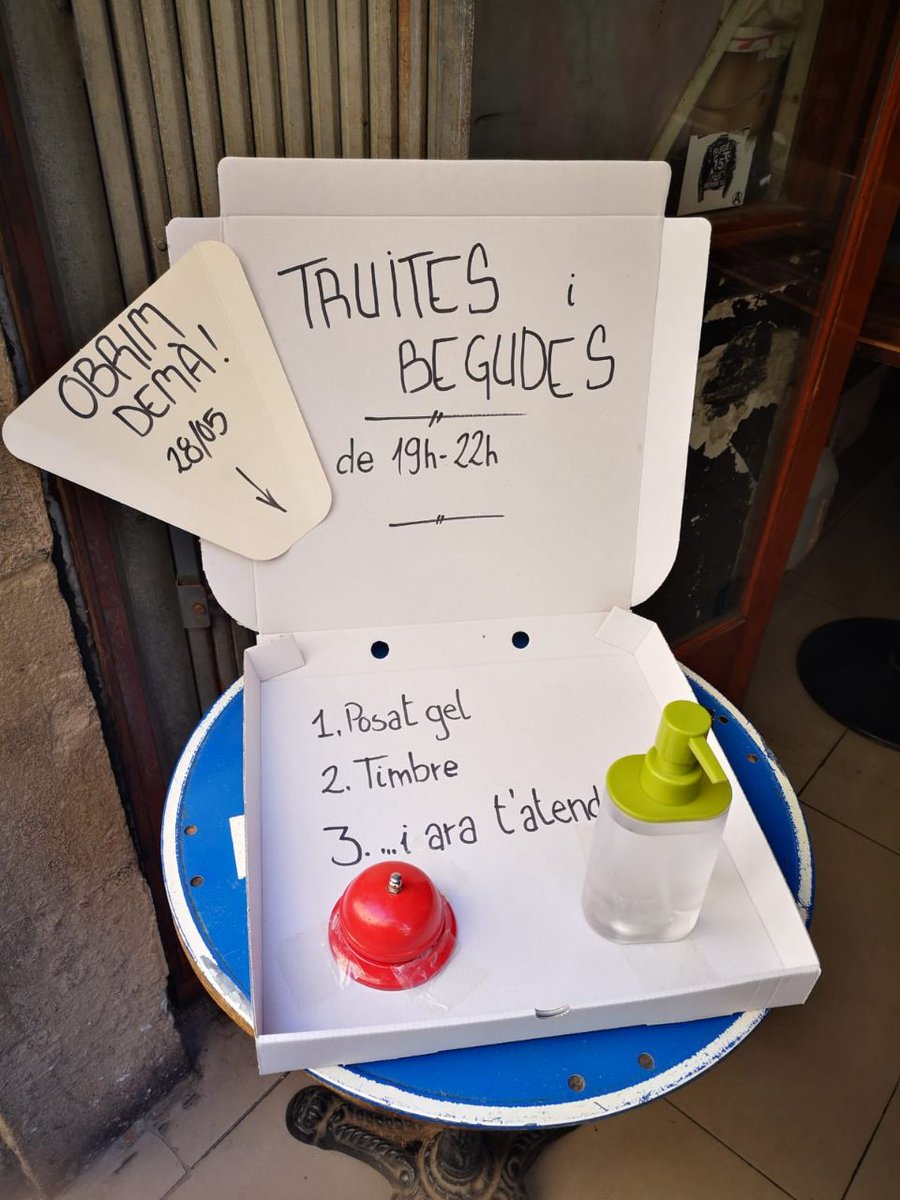 OBRIM
DEMÀ!
28/05
TRUITES i
BEGUDES
de 19h-22h
1. Posat gel
2. Timbre
3. ...i ara t'atend